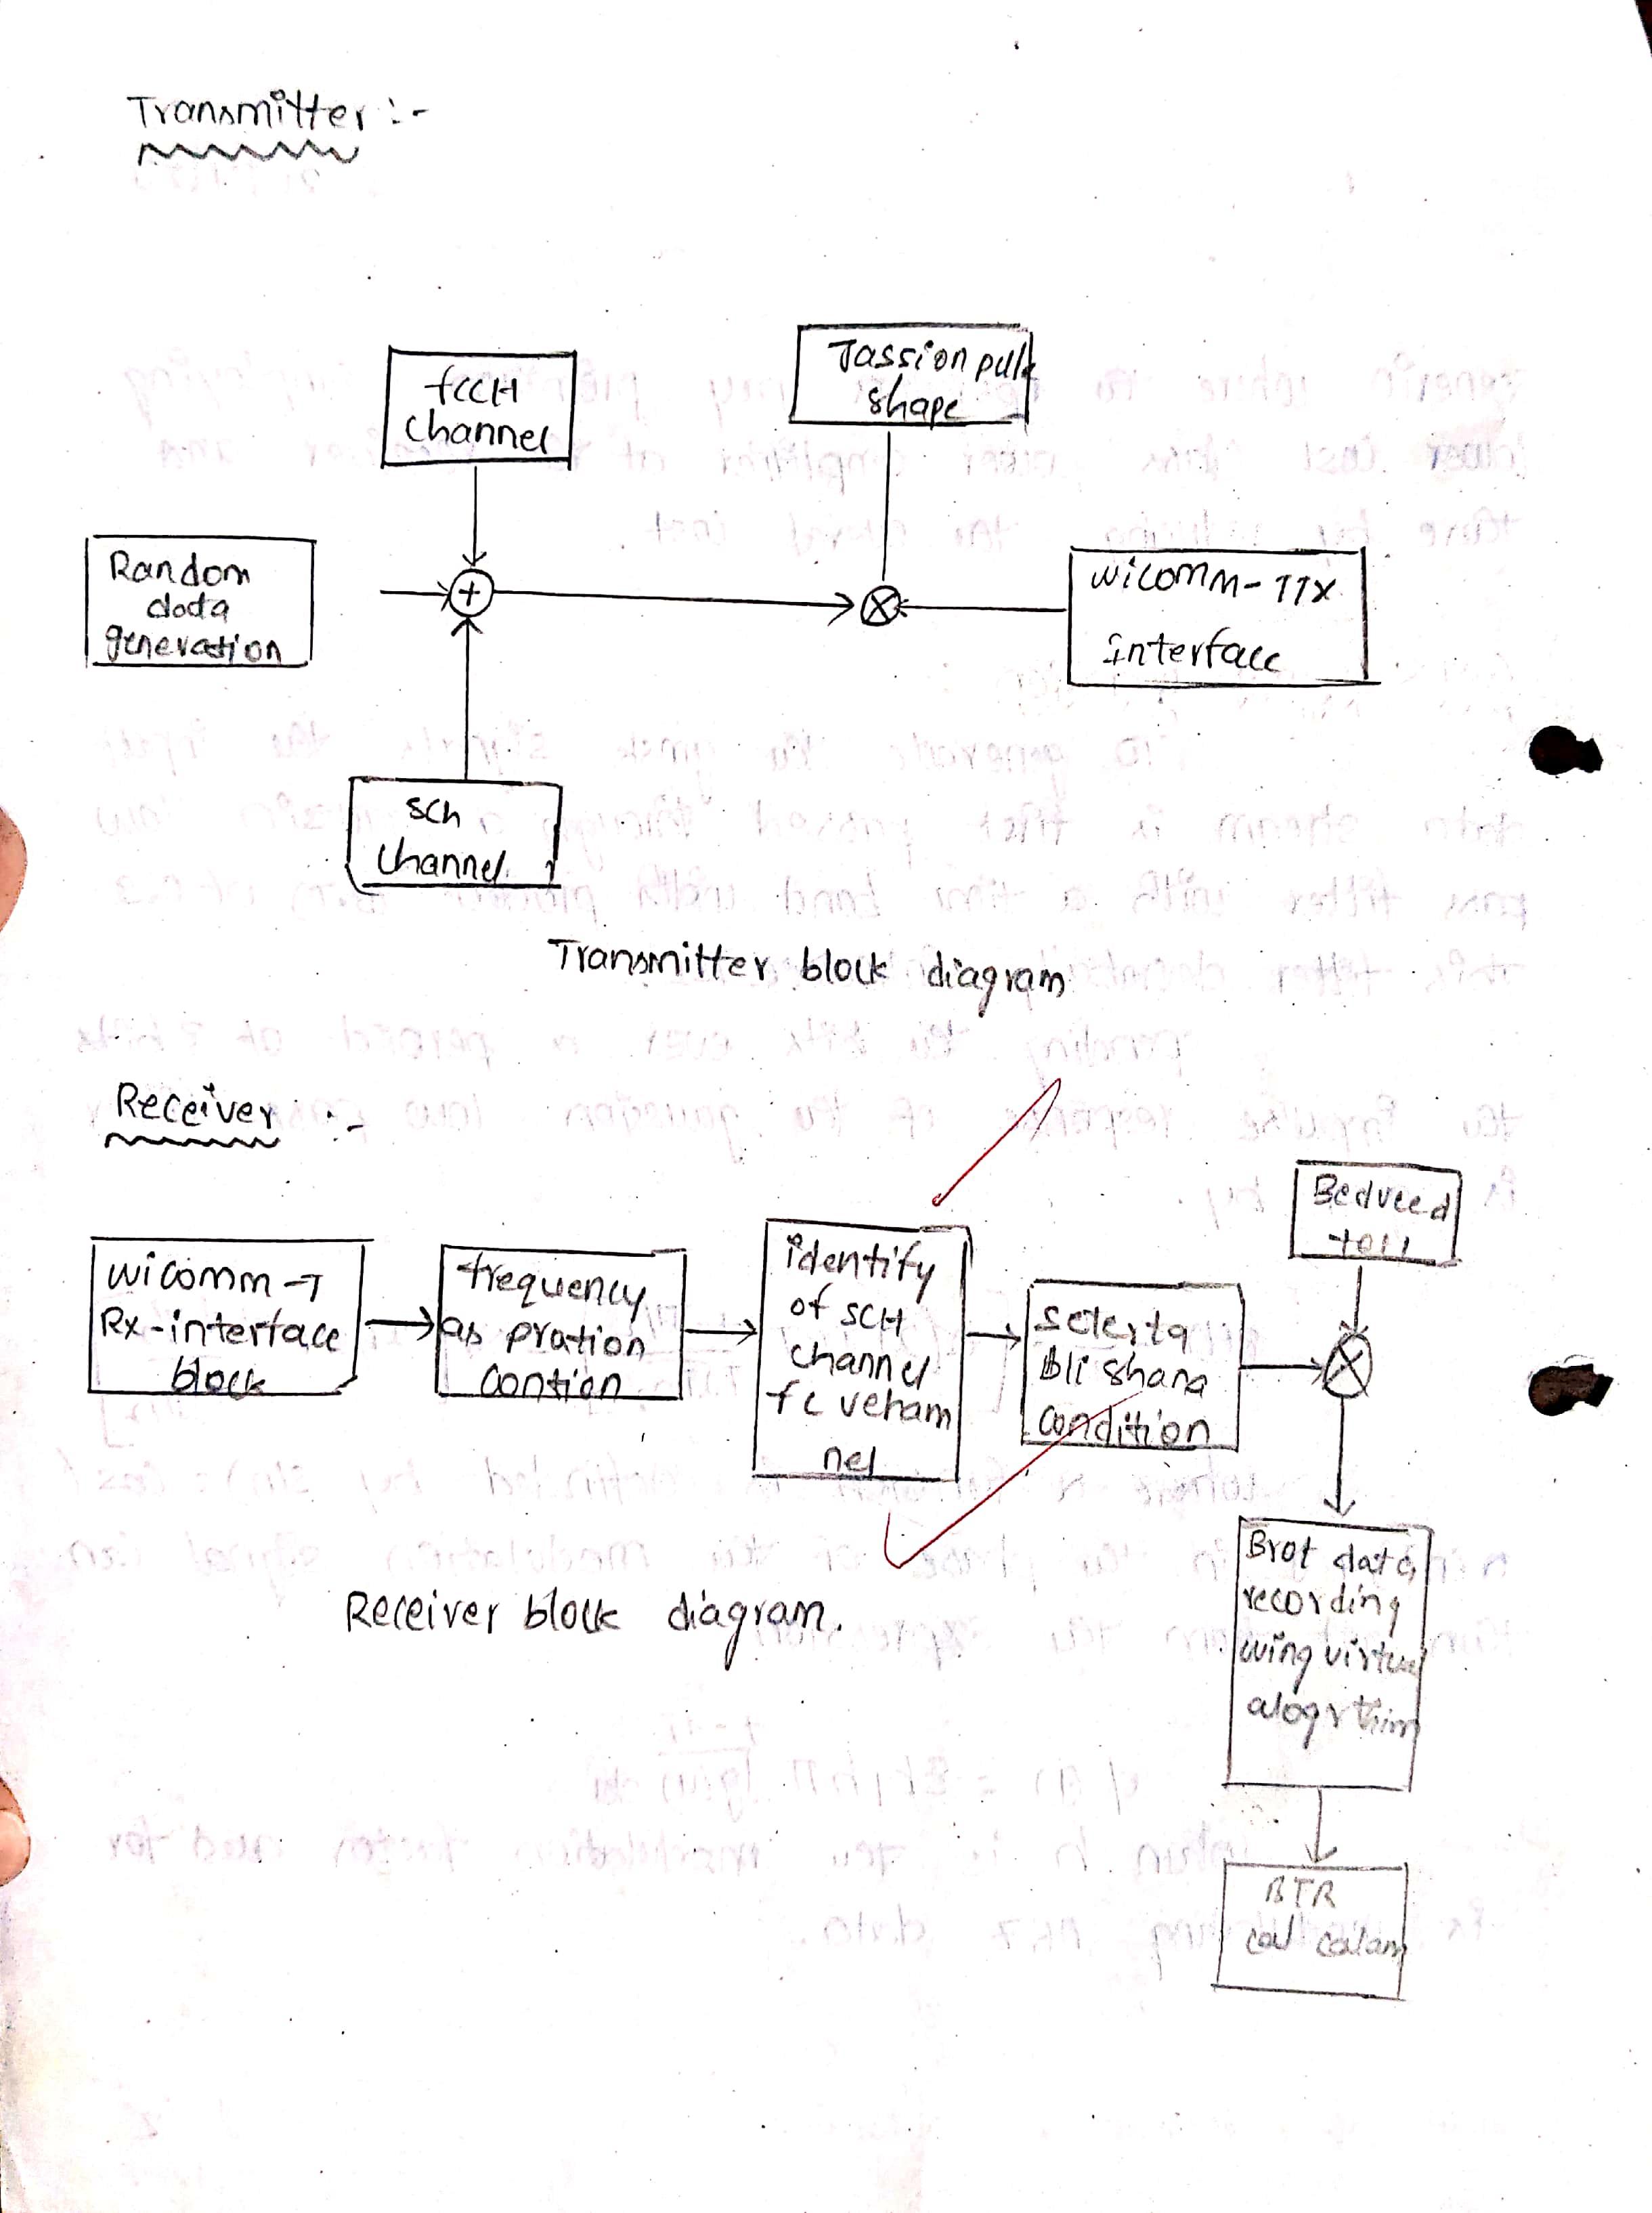 Transmitter :-
fccH
channel
Jassion pulse
shape
Random
doda
generation
+
wicomm-TTX
interface
sch
channel.
Transmitter block diagram
Receiver :-
Beduced
wicomm-T
Rx-interface
block
frequency
as pration
contion
identify
of SCH
channel
fc veham
nel
selexta
bli shana
condition
Brot data
recording
wing virtual
alogrthim
Receiver block diagram.
BTR
cal calam